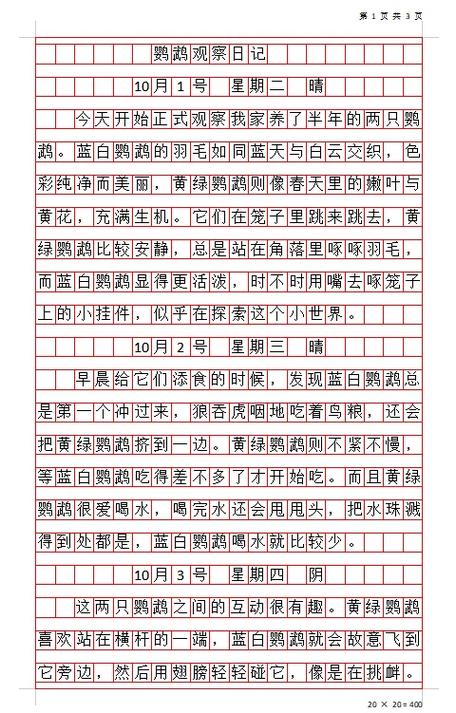 第 1 页 共 3 页
鹦鹉观察日记
10月1号 星期二 晴
今天开始正式观察我家养了半年的两只鹦
鹉。蓝白鹦鹉的羽毛如同蓝天与白云交织，色
彩纯净而美丽，黄绿鹦鹉则像春天里的嫩叶与
黄花，充满生机。它们在笼子里跳来跳去，黄
绿鹦鹉比较安静，总是站在角落里啄啄羽毛，
而蓝白鹦鹉显得更活泼，时不时用嘴去啄笼子
上的小挂件，似乎在探索这个小世界。
10月2号 星期三 晴
早晨给它们添食的时候，发现蓝白鹦鹉总
是第一个冲过来，狼吞虎咽地吃着鸟粮，还会
把黄绿鹦鹉挤到一边。黄绿鹦鹉则不紧不慢，
等蓝白鹦鹉吃得差不多了才开始吃。而且黄绿
鹦鹉很爱喝水，喝完水还会甩甩头，把水珠溅
得到处都是，蓝白鹦鹉喝水就比较少。
10月3号 星期四 阴
这两只鹦鹉之间的互动很有趣。黄绿鹦鹉
喜欢站在横杆的一端，蓝白鹦鹉就会故意飞到
它旁边，然后用翅膀轻轻碰它，像是在挑衅。
20 × 20=400